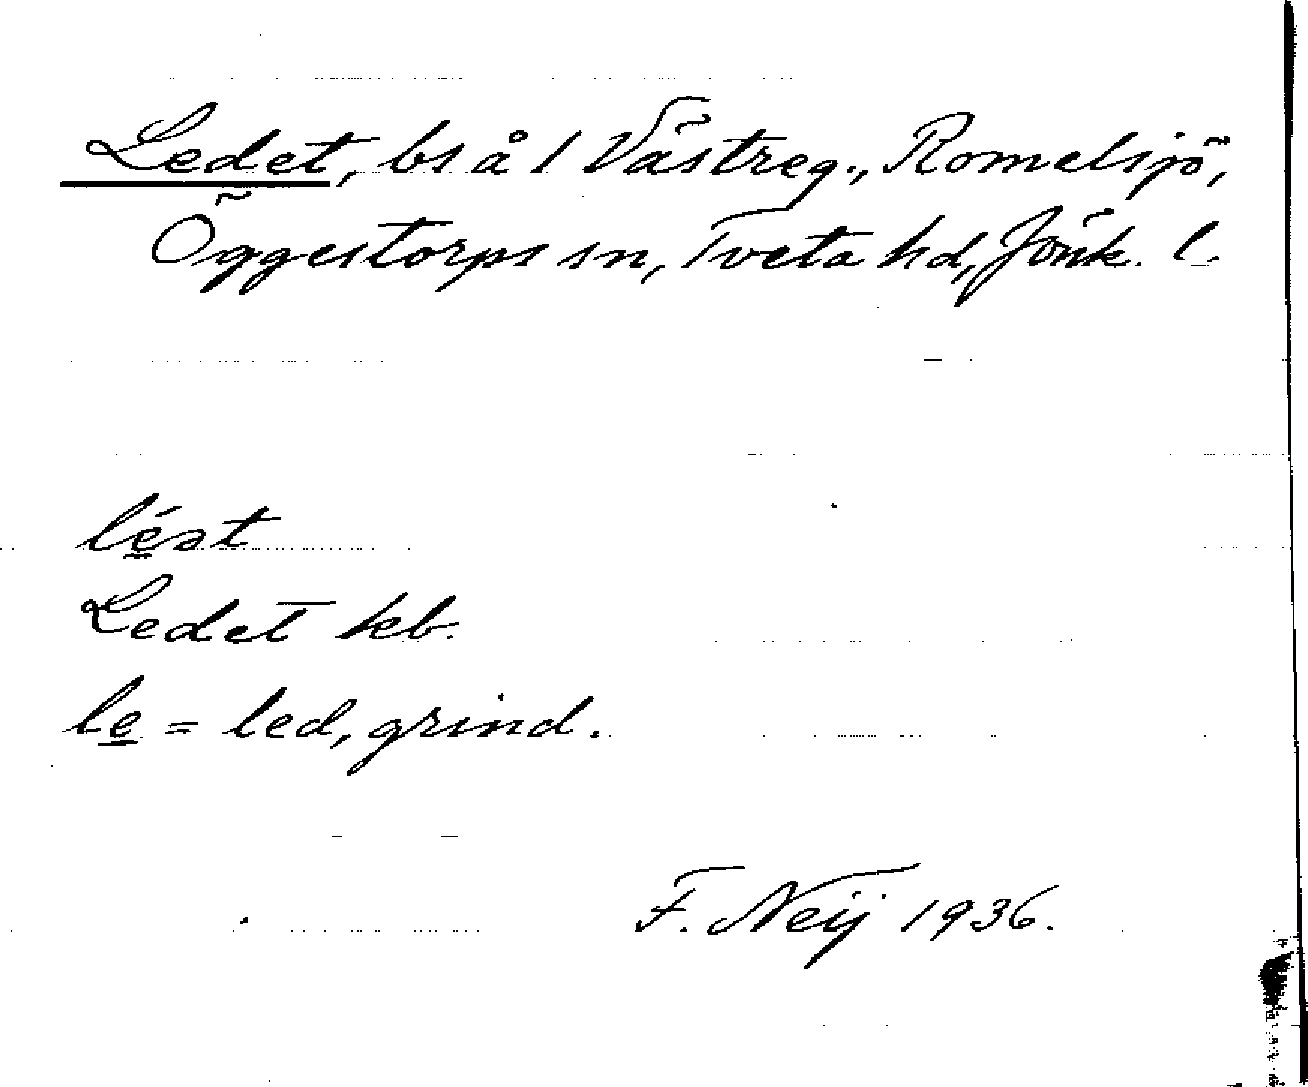 Ledet, bs å 1 Västreg., Romelsjö,
Öggestorps sn, Tveta hd, Jönk. l.
lé̲ət
Ledet kb.
le̲ = led, grind.
F. Neij 1936.